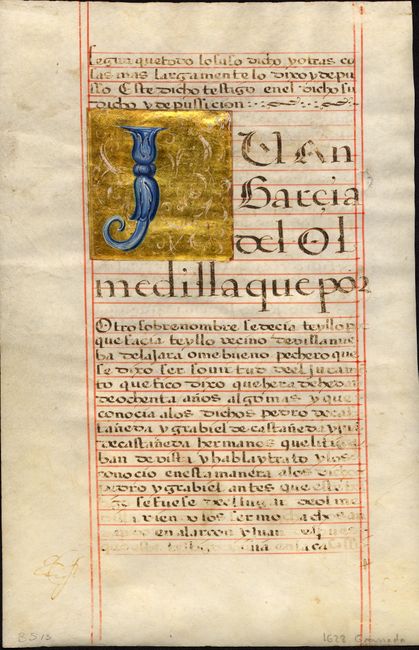 segun que todo lo suso dicho y otras co
sas mas largamente lo dixo y depu
sso Este dicho testigo en el dicho su
dicho y depussicion
JUAn
Garçia
del Ol
medilla que por
Otro sobrenombre se decia teyllo
que façia teyllo vecino de villanue
ba dela jara ome bueno pechero que
se dixo ser so virtud del juramen
to que fico dixo que hera de hedad
de ochenta años algo mas y que
conocia a los dichos pedro de cas
tañeda y grabiel de castañeda
de castañeda hermanos que litiga
ban de vista y habla y trato y los
conocio en esta manera a los dichos
pedro y grabiel antes que este
se fuese del lugar de olme
dilla rien
en alarcon y juan despues
en su casa
8515
1628 Granada